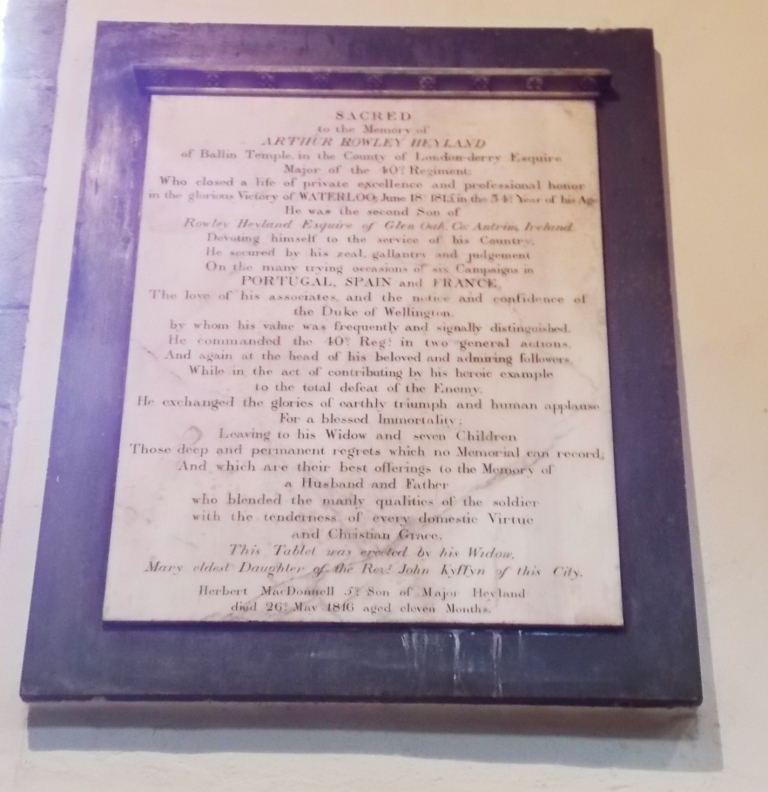 SACRED
to the Memory of
ARTHUR ROWLEY HEYLAND
of Ballin Temple, in the County of London-derry Esquire
Major of the 40th Regiment;
Who closed a life of private excellence and professional honor
in the glorious Victory of WATERLOO, June 18th 1815, in the 34th Year of his Age
He was the second Son of
Rowley Heyland Esquire of Glen Oak, Co: Antrim, Ireland.
Devoting himself to the service of his Country,
He secured by his zeal, gallantry and judgement
On the many trying occasions of six Campaigns in
PORTUGAL, SPAIN and FRANCE,
The love of his associates, and the notice and confidence of
the Duke of Wellington.
by whom his value was frequently and signally distinguished.
He commanded the 40th Regt in two general actions.
And again at the head of his beloved and admiring followers,
While in the act of contributing by his heroic example
to the total defeat of the Enemy,
He exchanged the glories of earthly triumph and human applause
For a blessed Immortality;
Leaving to his Widow and seven Children
Those deep and permanent regrets which no Memorial can record,
And which are their best offerings to the Memory of
a Husband and Father
who blended the manly qualities of the soldier
with the tenderness of every domestic Virtue
and Christian Grace.
This Tablet was erected by his Widow,
Mary eldest Daughter of the Revd John Kyffyn of this City.
Herbert MacDonnell 5th Son of Major Heyland
died 26th May 1816 aged eleven Months.